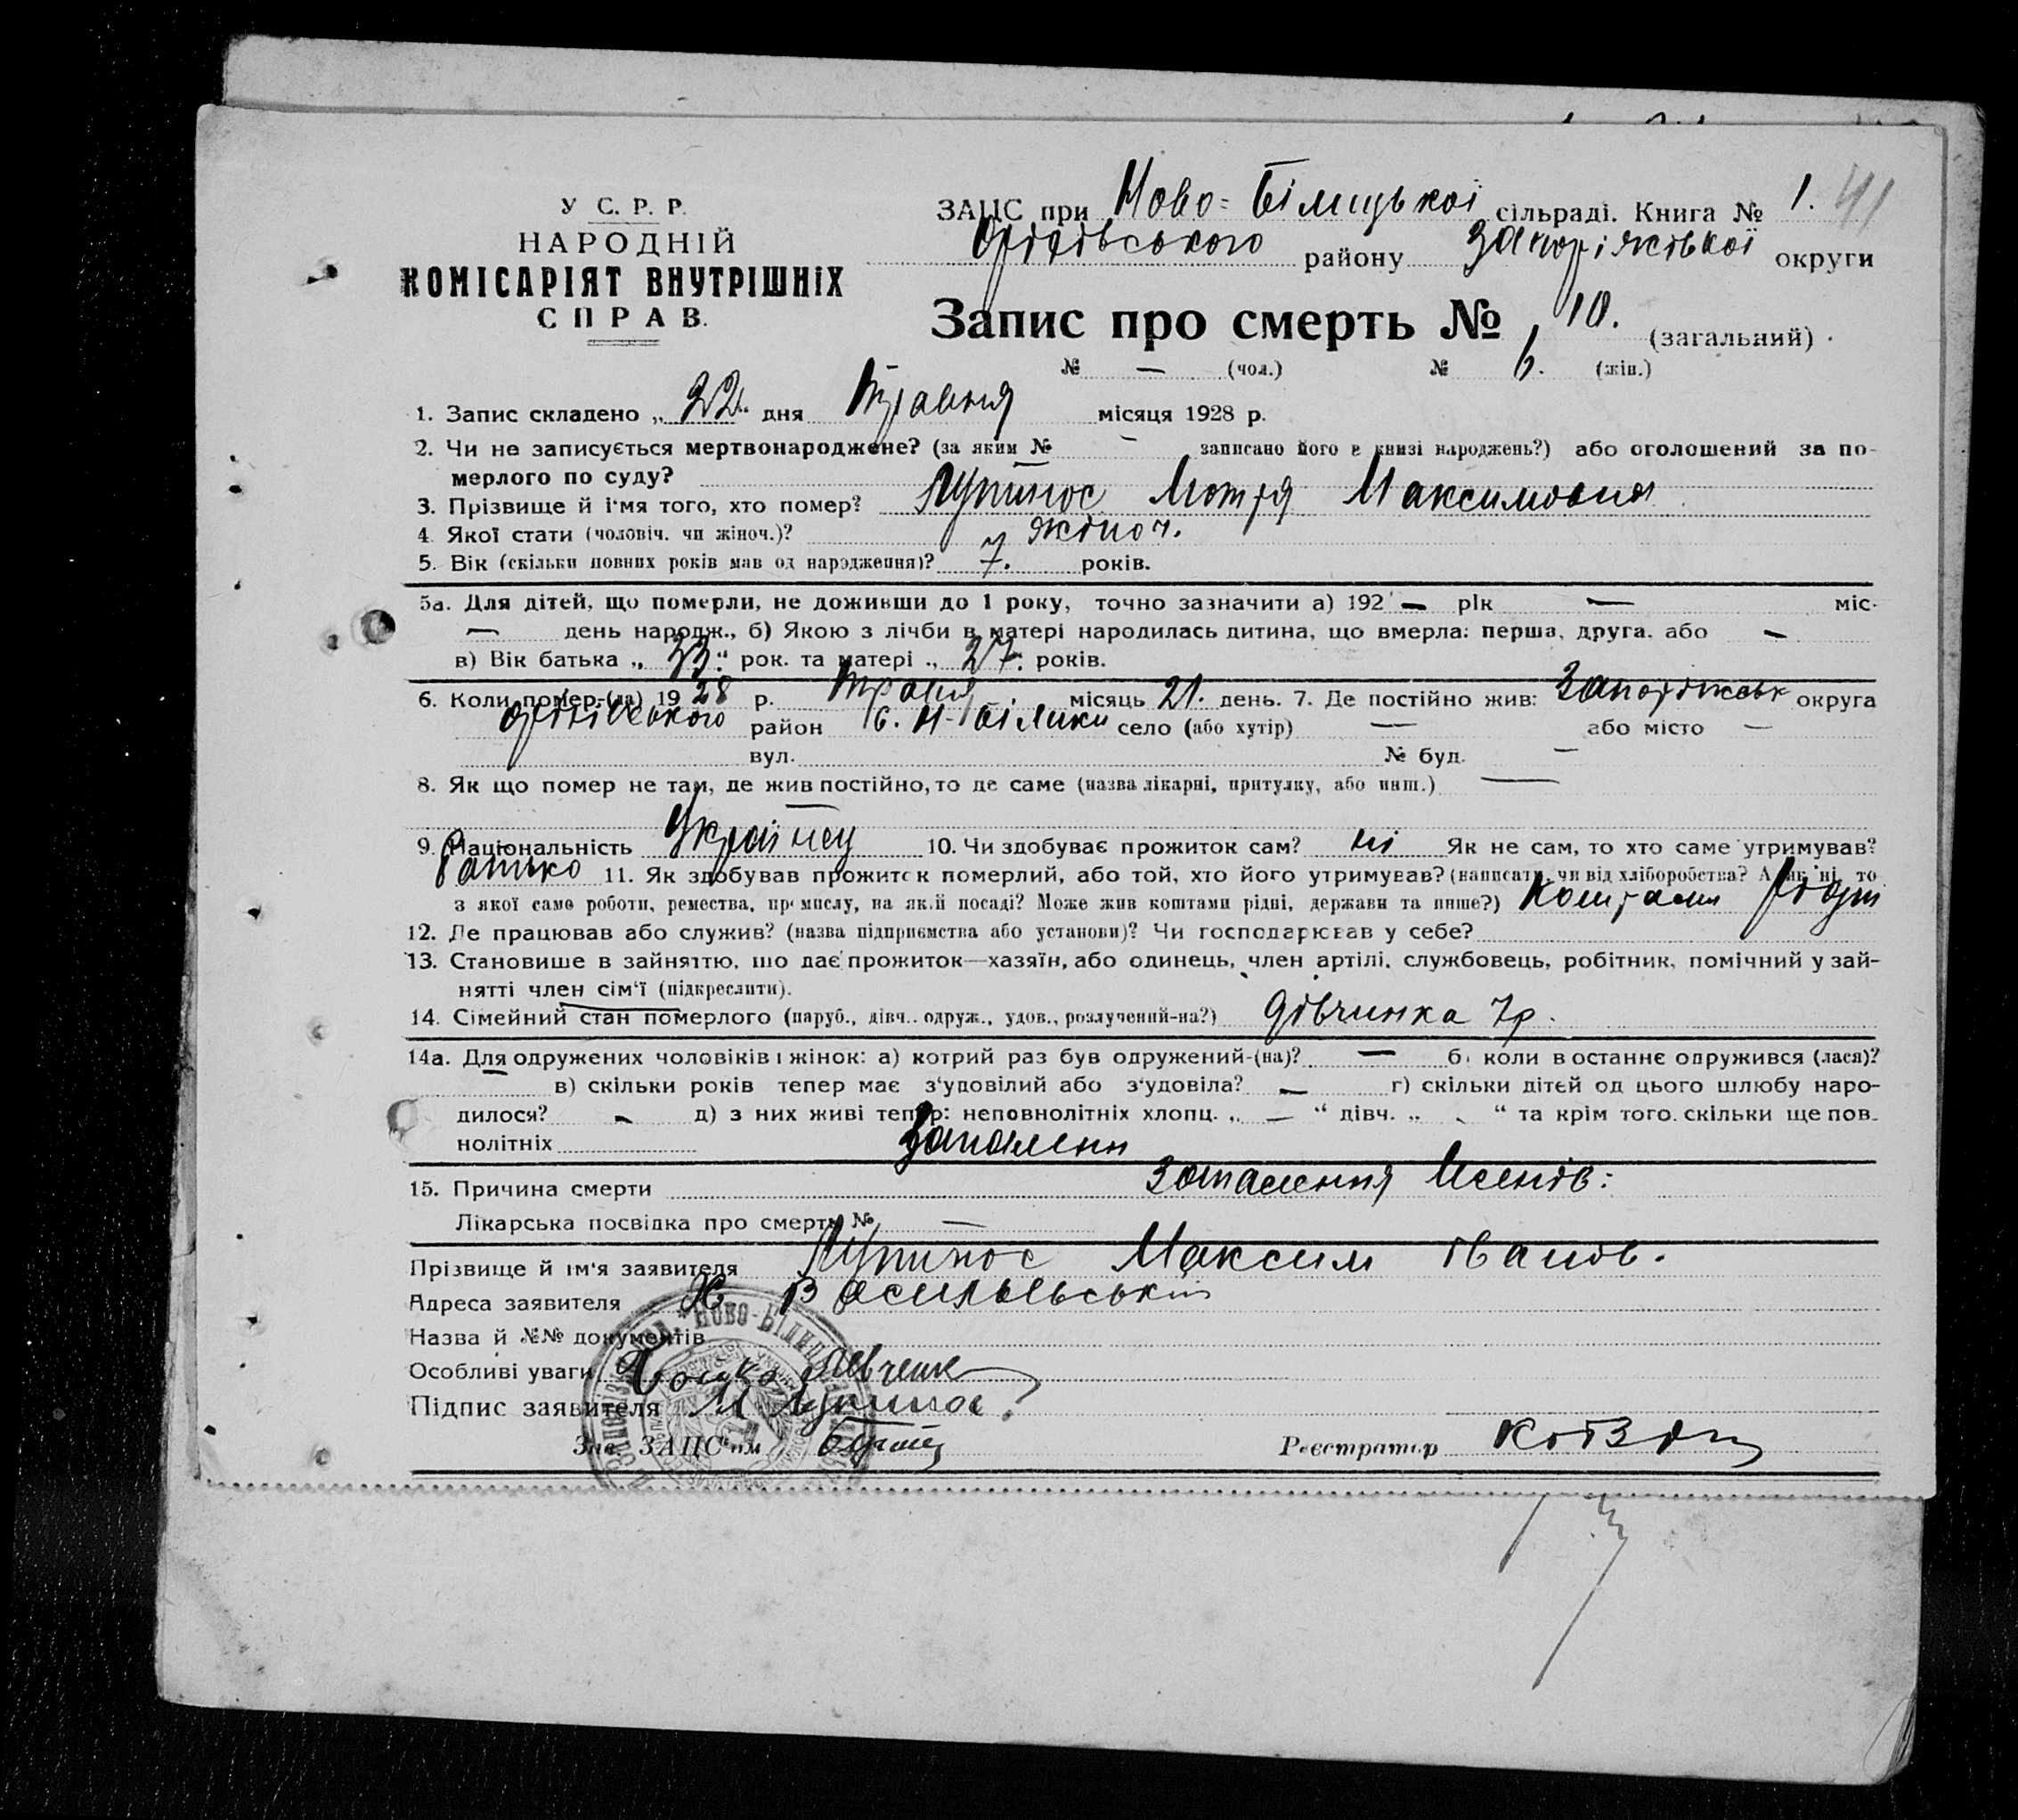 У С. Р. Р.
НАРОДНІЙ
КОМІСАРІЯТ ВНУТРІШНІХ
СПРАВ.
ЗАЦС при Ново-Білицької сільраді. Книга № 1. 41
Оріхівського району Запоріжської округи
Запис про смерть № 10. (загальний)
№ — (чол.) № 6. (жін.)
1. Запис складено „22“ дня Травня місяця 1928 р.
2. Чи не записується мертвонароджене? (за яким № — записано його в книзі народжень?) або оголошений за по-
мерлого по суду? —
3. Прізвище й і'мя того, хто помер? Лупинос Мотря Максимовна
4. Якої стати (чоловіч. чи жіноч.)? жіноч.
5. Вік (скільки повних років мав од народження)? 7. років.
5а. Для дітей, що померли, не доживши до 1 року, точно зазначити а) 192 — рік — міс.
— день народж., б) Якою з лічби в матері народилась дитина, що вмерла: перша, друга, або —
в) Вік батька „33“ рок. та матері „27. років.
6. Коли помер-(ла) 1928 р. Травня місяць 21. день. 7. Де постійно жив: Запоріжськ округа
Оріхівського район с. Н-Білики село (або хутір) — або місто —
вул. № буд. —
8. Як що помер не там, де жив постійно, то де саме (назва лікарні, притулку, або инш.) —
9. Національність Украінец 10. Чи здобуває прожиток сам? ні Як не сам, то хто саме утримував?
Батько 11. Як здобував прожиток померлий, або той, хто його утримував? (написати, чи від хліборобства? А як ні, то
з якої саме роботи, ремества, промислу, на якій посаді? Може жив коштами рідні, держави та инше?) Коштами
12. Де працював або служив? (назва підприємства або установи)? Чи господарював у себе?
13. Становище в зайняттю, що дає прожиток—хазяїн, або одинець, член артілі, службовець, робітник, помічний у зай-
нятті член сім'ї (підкреслити).
14. Сімейний стан померлого (паруб., дівч., одруж., удов., розлучений-на?) дівчинка 7р.
14а. Для одружених чоловіків і жінок: а) котрий раз був одружений-(на)? — б) коли в останнє одружився (лася)?
— в) скільки років тепер має з'удовілий або з'удовіла? — г) скільки дітей од цього шлюбу наро-
дилося? — д) з них живі тепер: неповнолітніх хлопц. „ — “ дівч. „ - “ та крім того, скільки ще пов-
нолітніх
15. Причина смерти Запалення
Лікарська посвідка про смерть № —
Прізвище й ім'я заявителя Лупинос Максим Іванов.
Адреса заявителя Х Васильевський
Назва й №№ документів
Особливі уваги
Підпис заявителя М Лупинос
Зав. ЗАЦС'ом Реєстратор